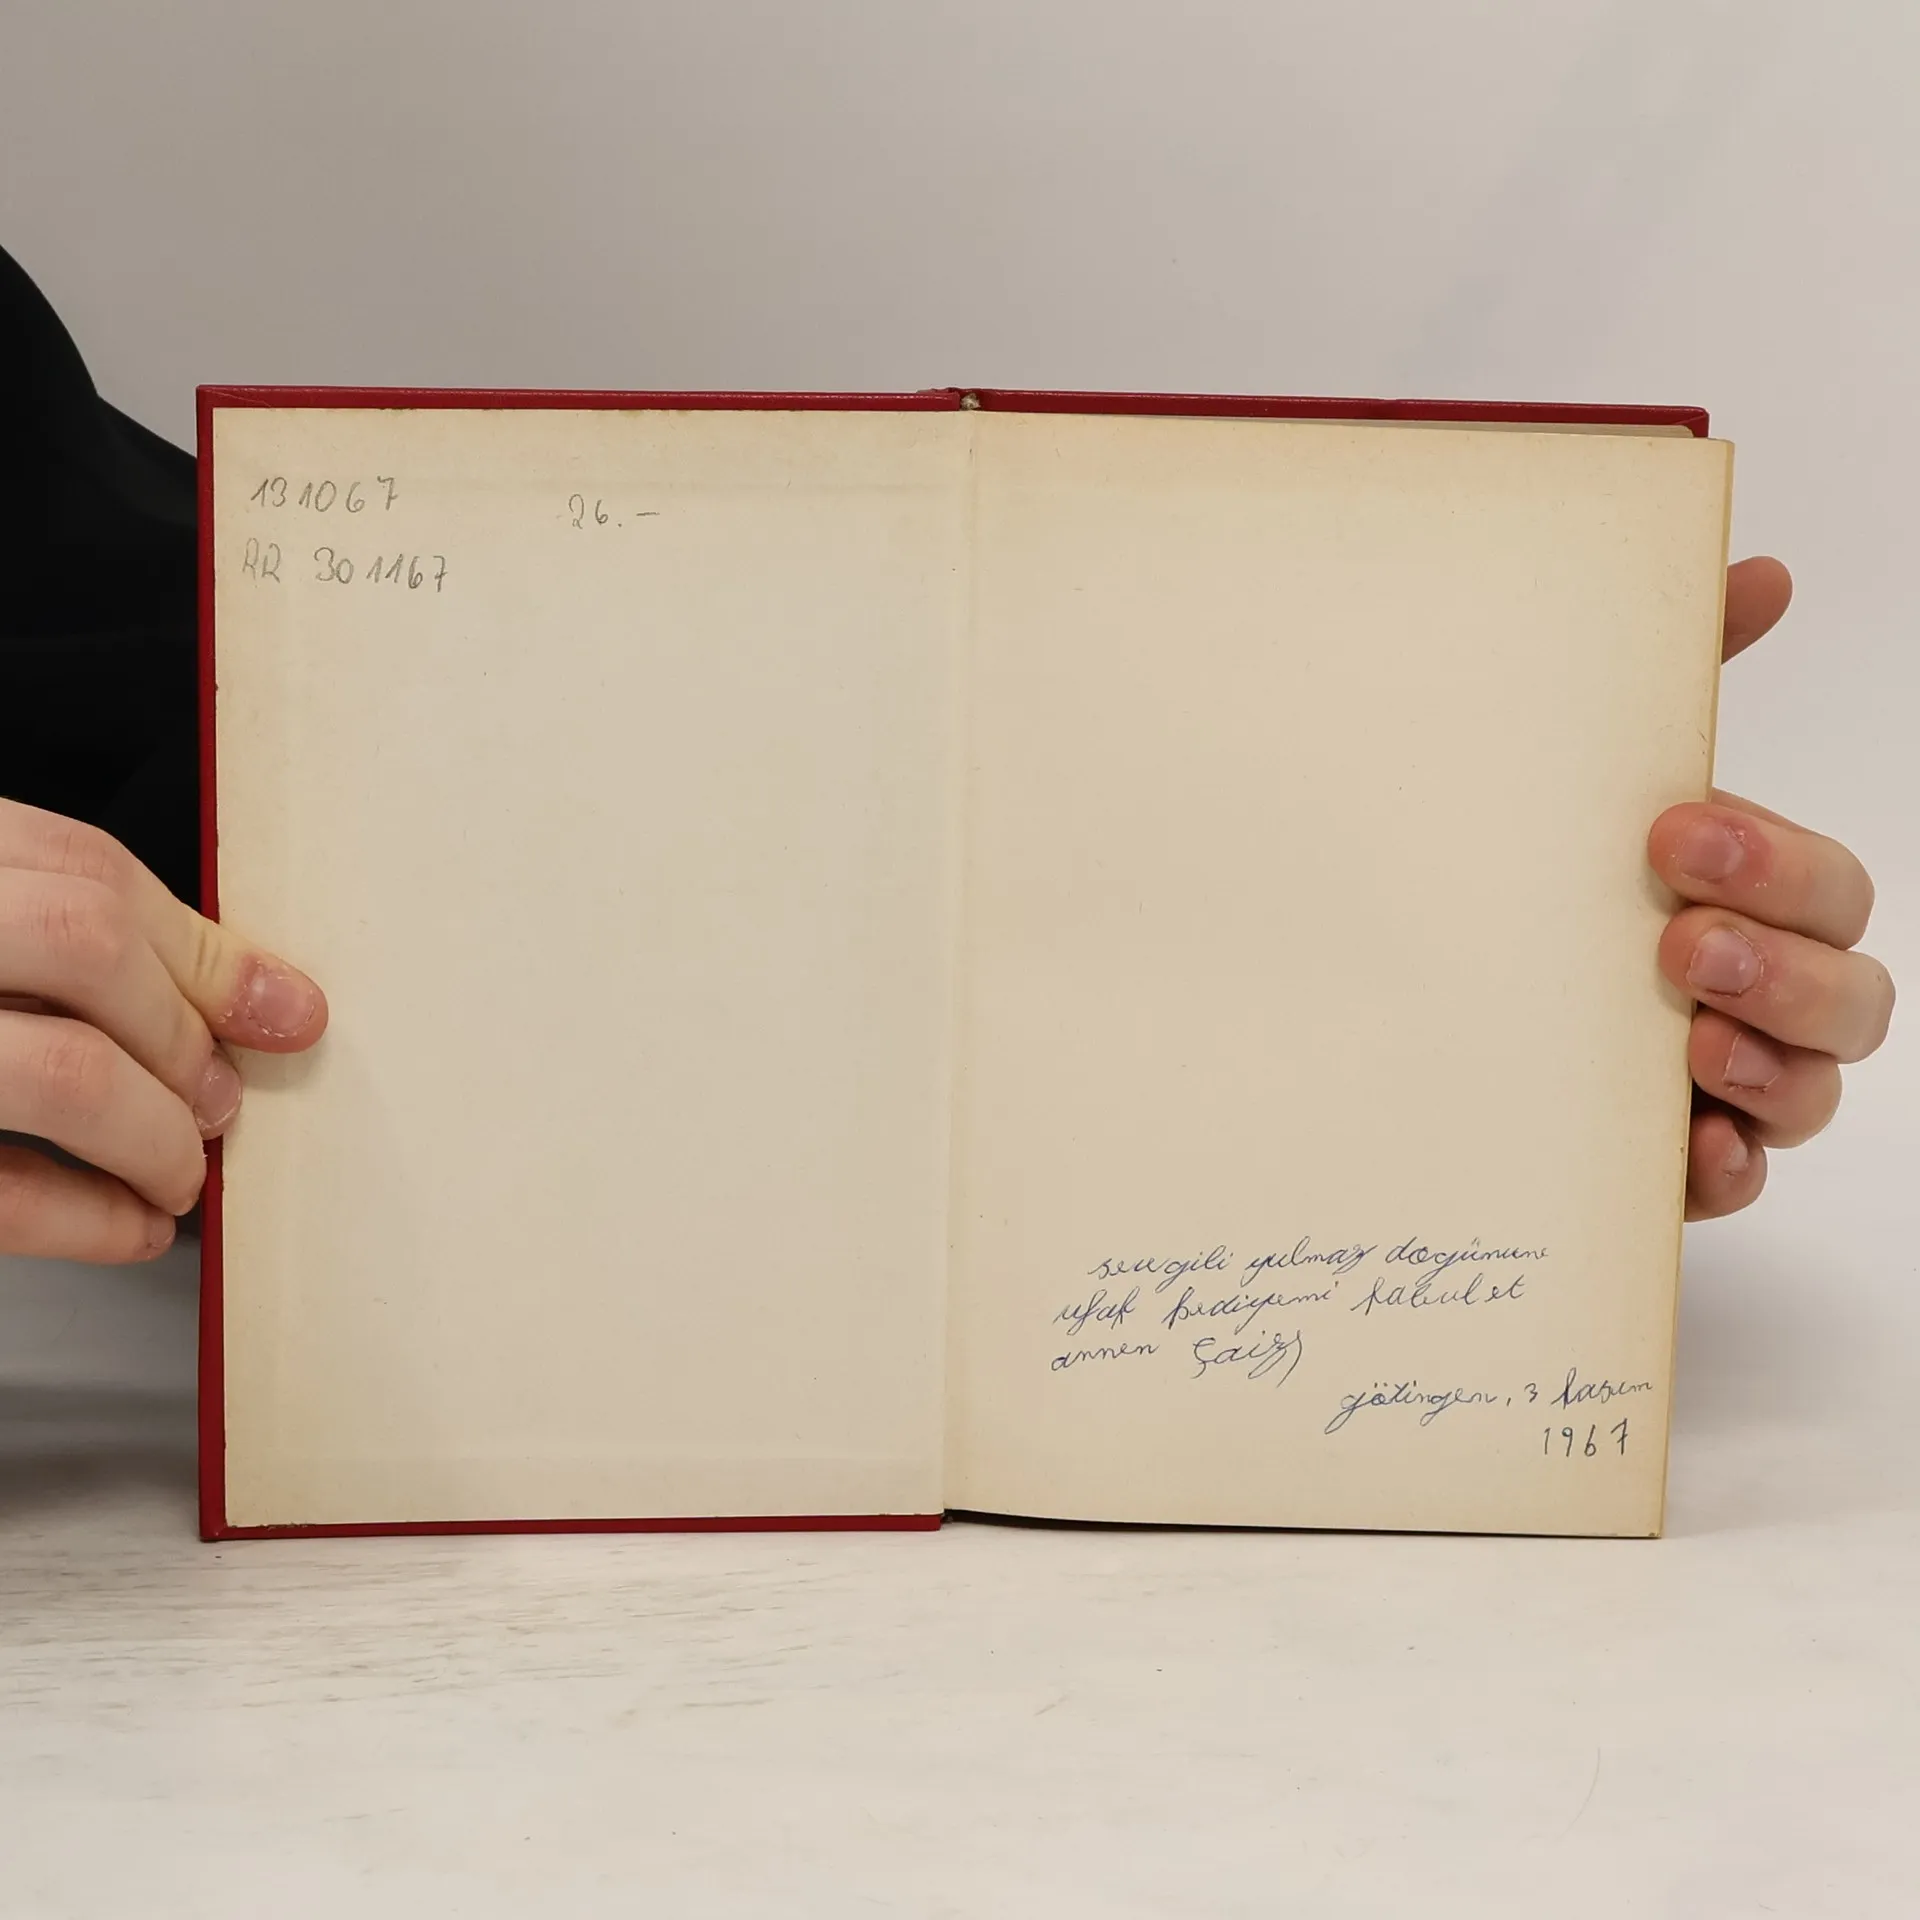 131067
26.-
RR 301167
sevgili yılmaz dogününe
ufak hediyemi kabul et
annen
götingen, 3 kasım
1967